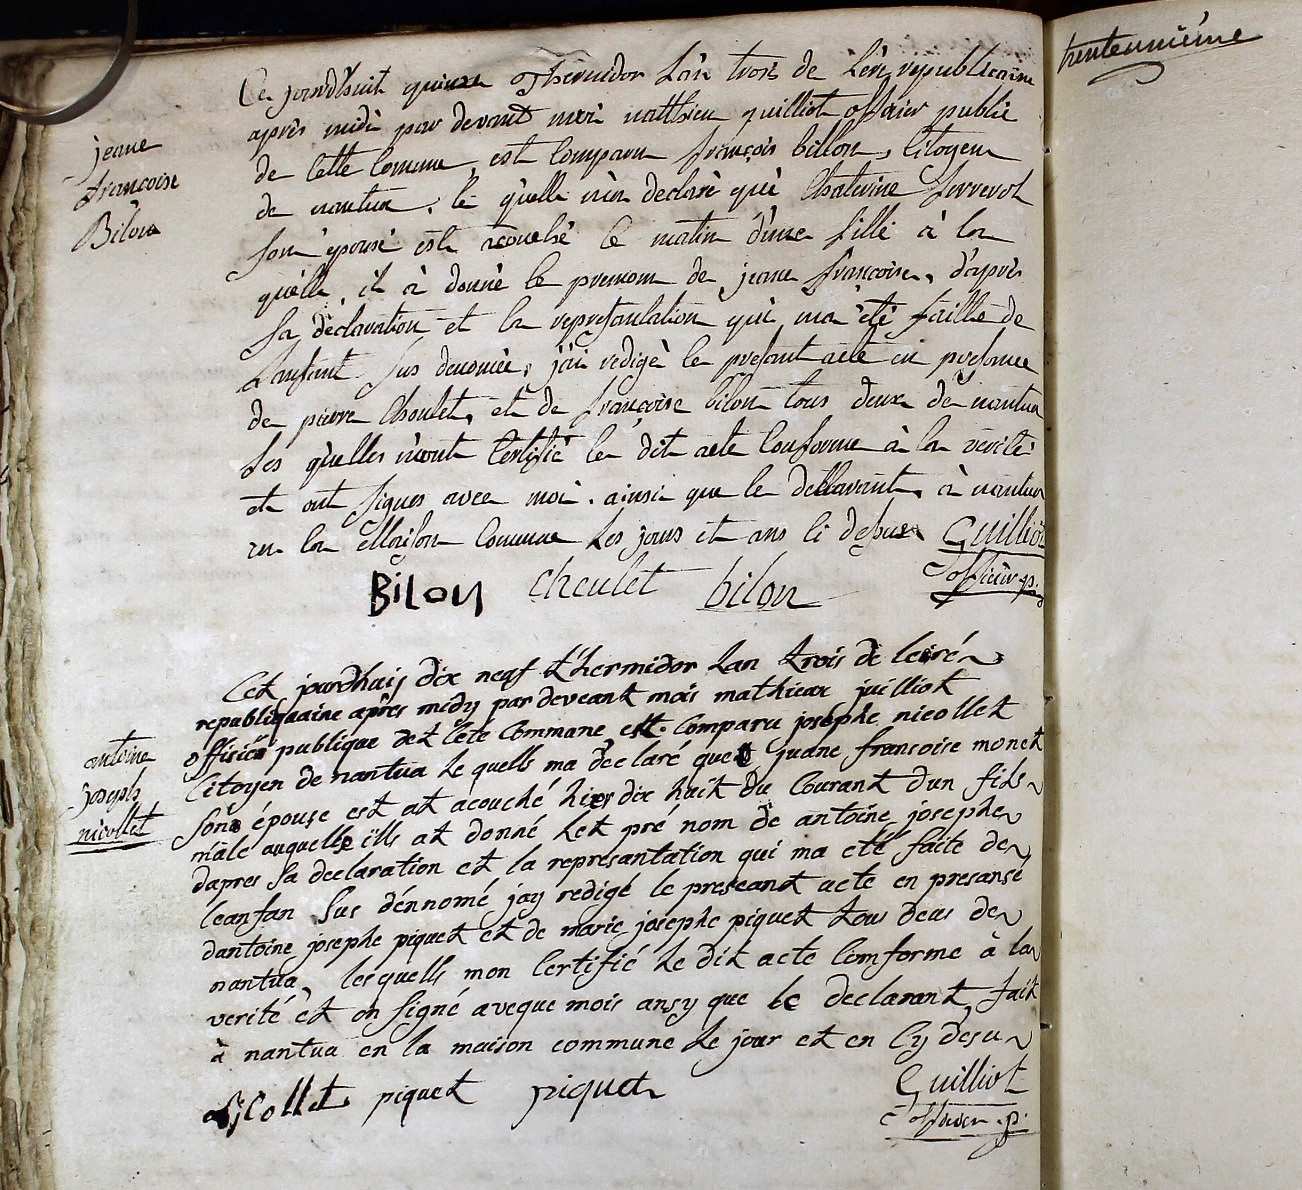 trenteunième
jeane
francoise
Bilon
Ce jourd'huit quinze Thermidor L'an trois de L'ère republicaine
après midi par devant moi matthieu quilliot officier public
de Cette Comune, est Comparu françois billon, Citoyen
de nantua, le quelle m'a declaré què Chaterine ferrerot
son épouse est acouché Ce matin d'une fille à la
quelle il à donné le prenom de jeane françoise, d'après
sa déclaration et la represantation qui ma été faitte de
L'anfant sus denomée, j'ai redigé le présant acte en presance
de pierre Choulet, et de françoise bilon tous deux de nantua
Les quelles m'ont Certifié le dit acte Conforme à la vérité
et ont signés avec moi ainsi que le decllarant, à nantua
en la Maison Commune Les jours et ans Ci desus Guilliot
officier p.
BiLon cheulet bilon
antoine
joseph
nicollet
Cet jourdhuij dix neuf thermidor Lan trois de leiré
republiquaine apres midy par deveant mois mathieux juilliot
offisiér publique det Cété Commane ett Comparu josephe nicollet
Citoyen de nantua Le quells ma déclaré quet Yuane francoise monet
sons épouse est at acouché hier dix huit du Courant dun fils
male auquelle ills at donné Let pré nom de antoine josephe
dapres sa declaration et la represantation qui ma eté faite de
leanfan sus dénnomé jay redigé le preseant acte en presanse
dantoine josephe piquet et de marie josephe piquet tous deus de
nantua, lesquells mon Certifié Le dit acte Comforme à la
verité et on signé aveque mois ansy que le declarant, fait
à nantua en la maison commune Le jour et en Cy desu
Guilliot
officier p.
nicollet piquet piquet